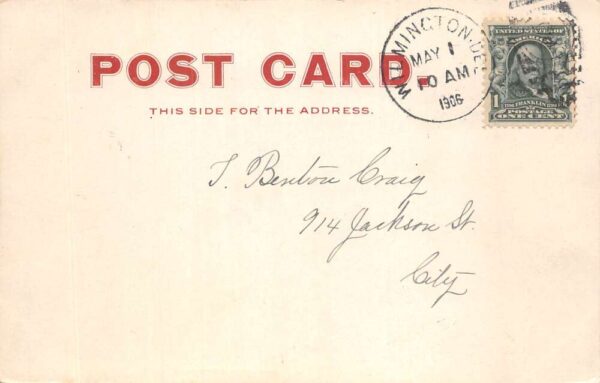 WILMINGTON. DEL.
MAY 1
10 AM
1906
UNITED STATES OF AMERICA
FRANKLIN
1
POSTAGE
ONE CENT
POST CARD.
THIS SIDE FOR THE ADDRESS.
T. Benton Craig
914 Jackson St.
City